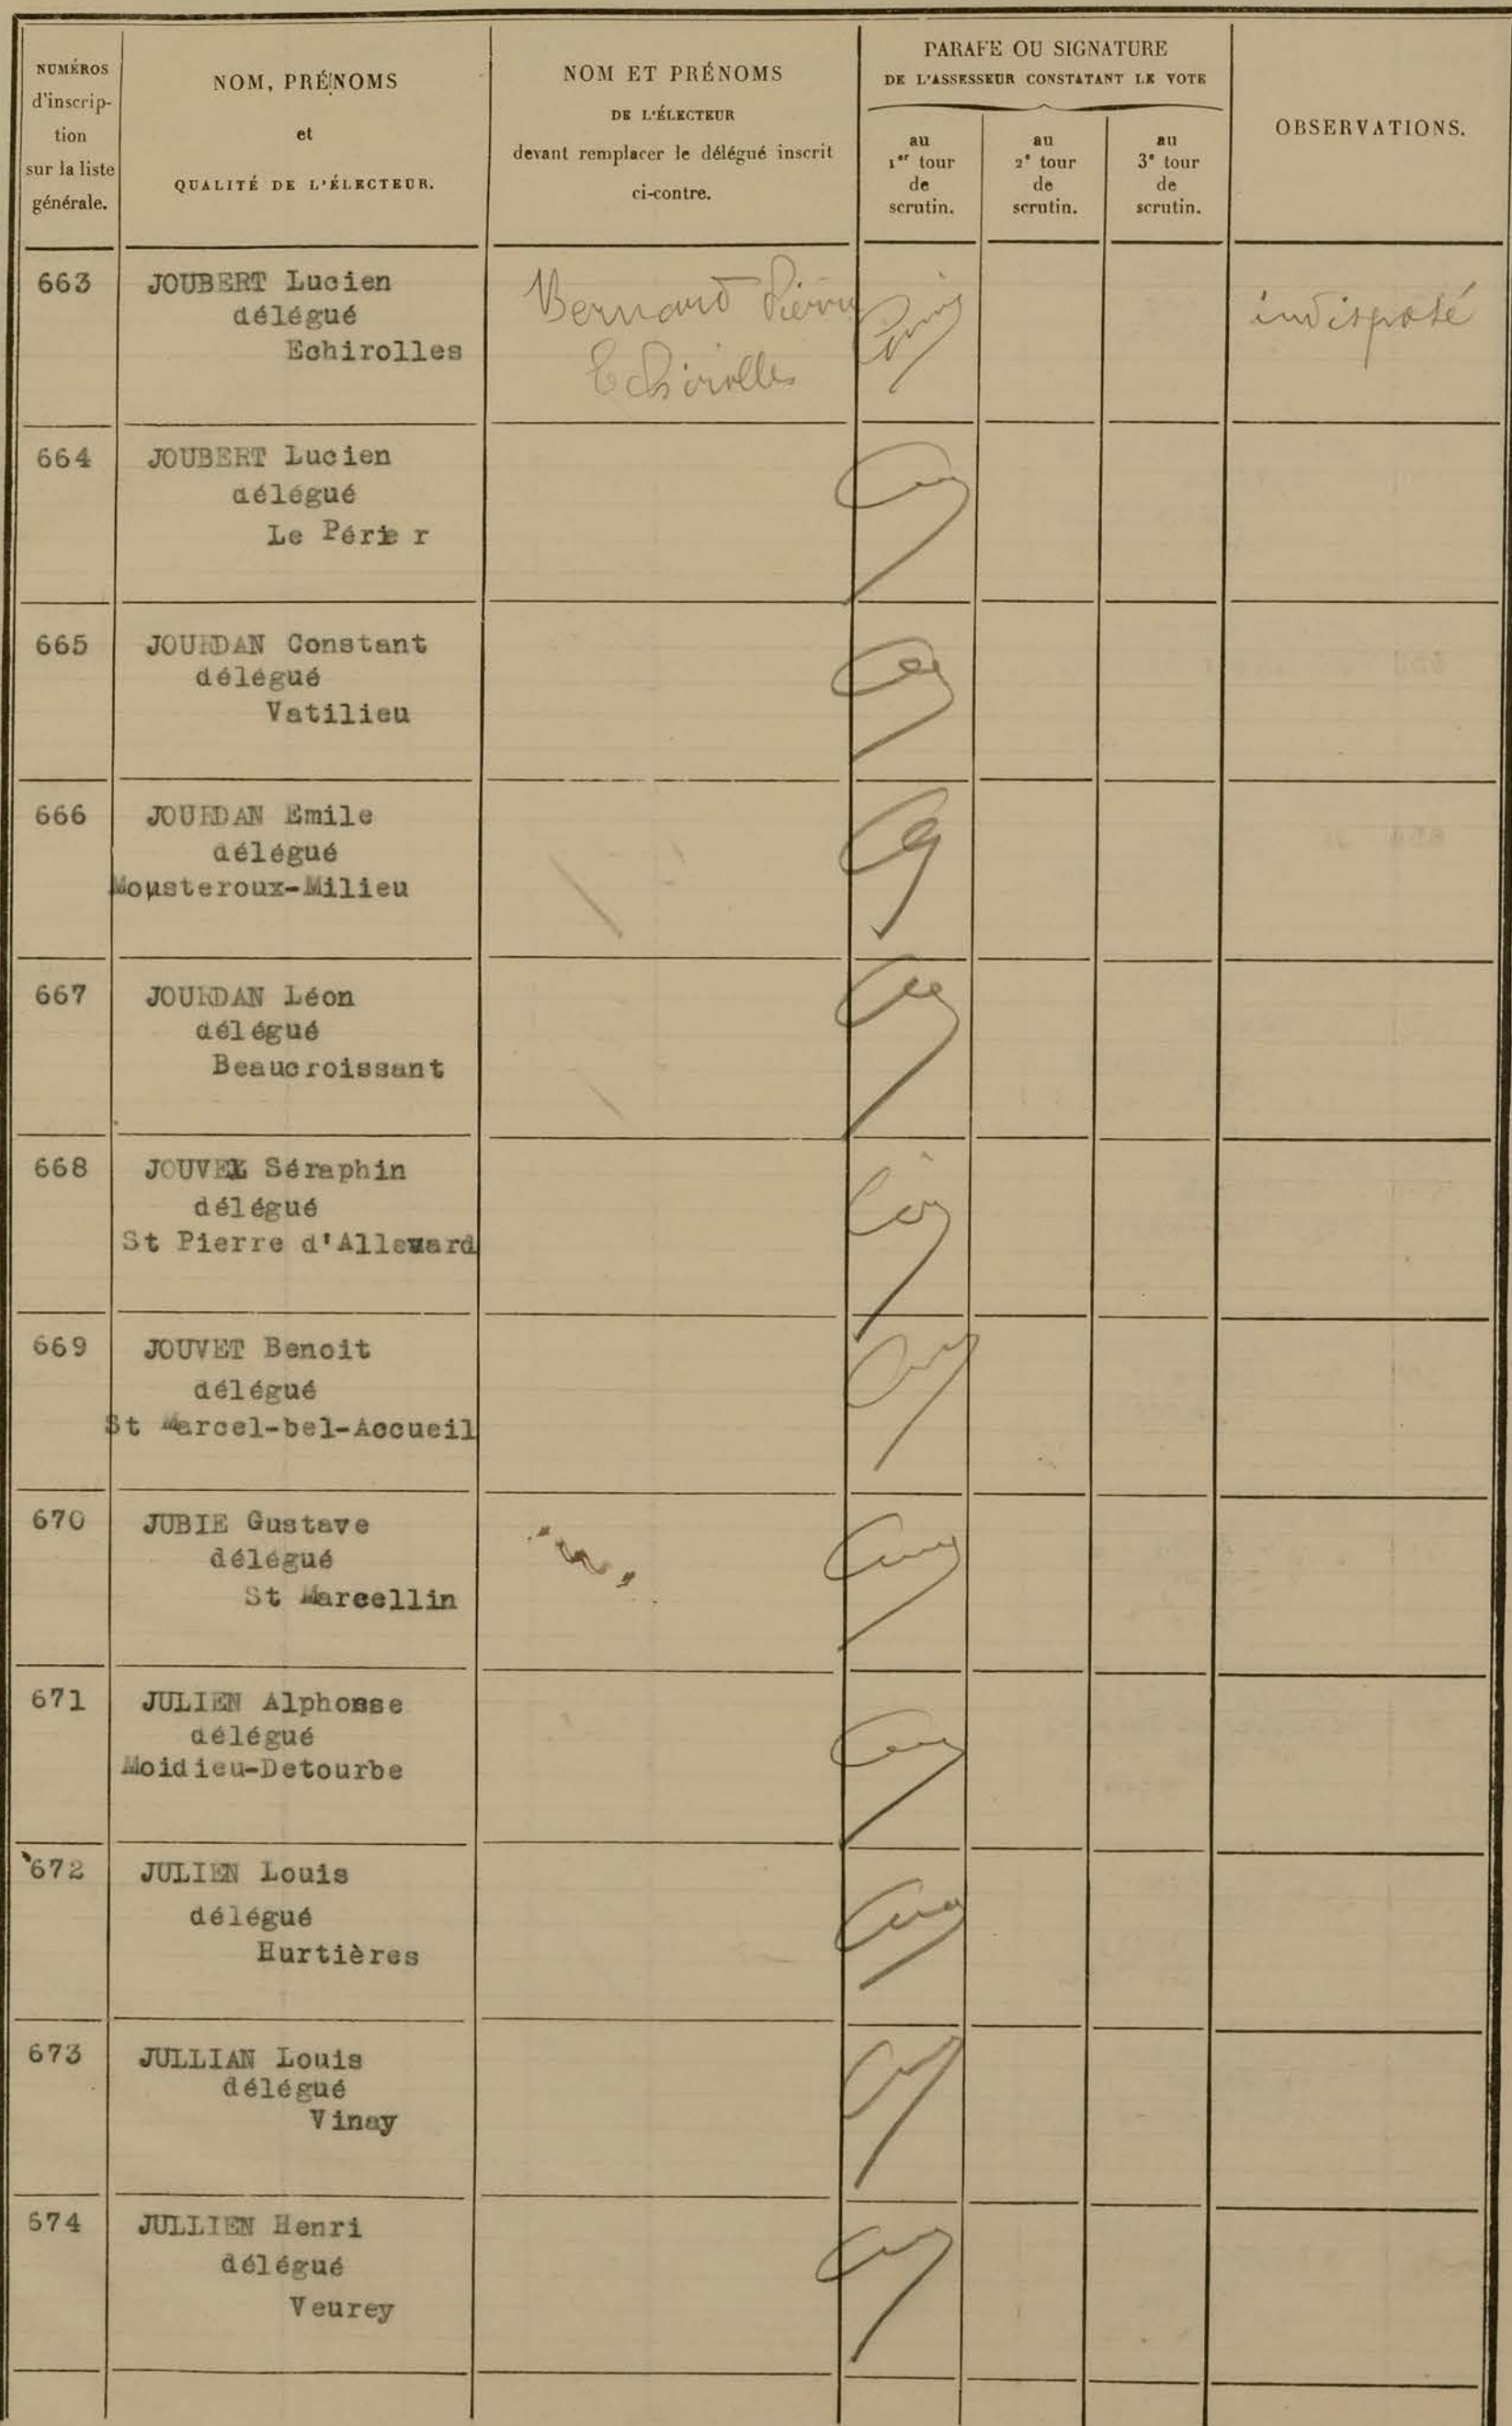 NUMÉROS
d'inscrip-
tion
sur la liste
générale.
NOM, PRÉNOMS
et
QUALITÉ DE L'ÉLECTEUR.
NOM ET PRÉNOMS
DE L'ÉLECTEUR
devant remplacer le délégué inscrit
ci-contre.
PARAFE OU SIGNATURE
DE L'ASSESSEUR CONSTATANT LE VOTE
au
1er tour
de
scrutin.
au
2e tour
de
scrutin.
au
3e tour
de
scrutin.
OBSERVATIONS.
663 JOUBERT Lucien Bernard Pierre indisposé
délégué
Echirolles Echirolles
664 JOUBERT Lucien
délégué
Le Périer
665 JOURDAN Constant
délégué
Vatilieu
666 JOURDAN Emile
délégué
Mousteroux-Milieu
667 JOURDAN Léon
délégué
Beaucroissant
668 Séraphin
délégué
St Pierre d'Allevard
669 JOUVET Benoit
délégué
St Marcel-bel-Accueil
670 JUBIE Gustave
délégué
St Marcellin
671 JULIEN Alphonse
délégué
Moidieu-Detourbe
672 JULIEN Louis
délégué
Hurtières
673 JULLIAN Louis
délégué
Vinay
674 JULLIEN Henri
délégué
Veurey